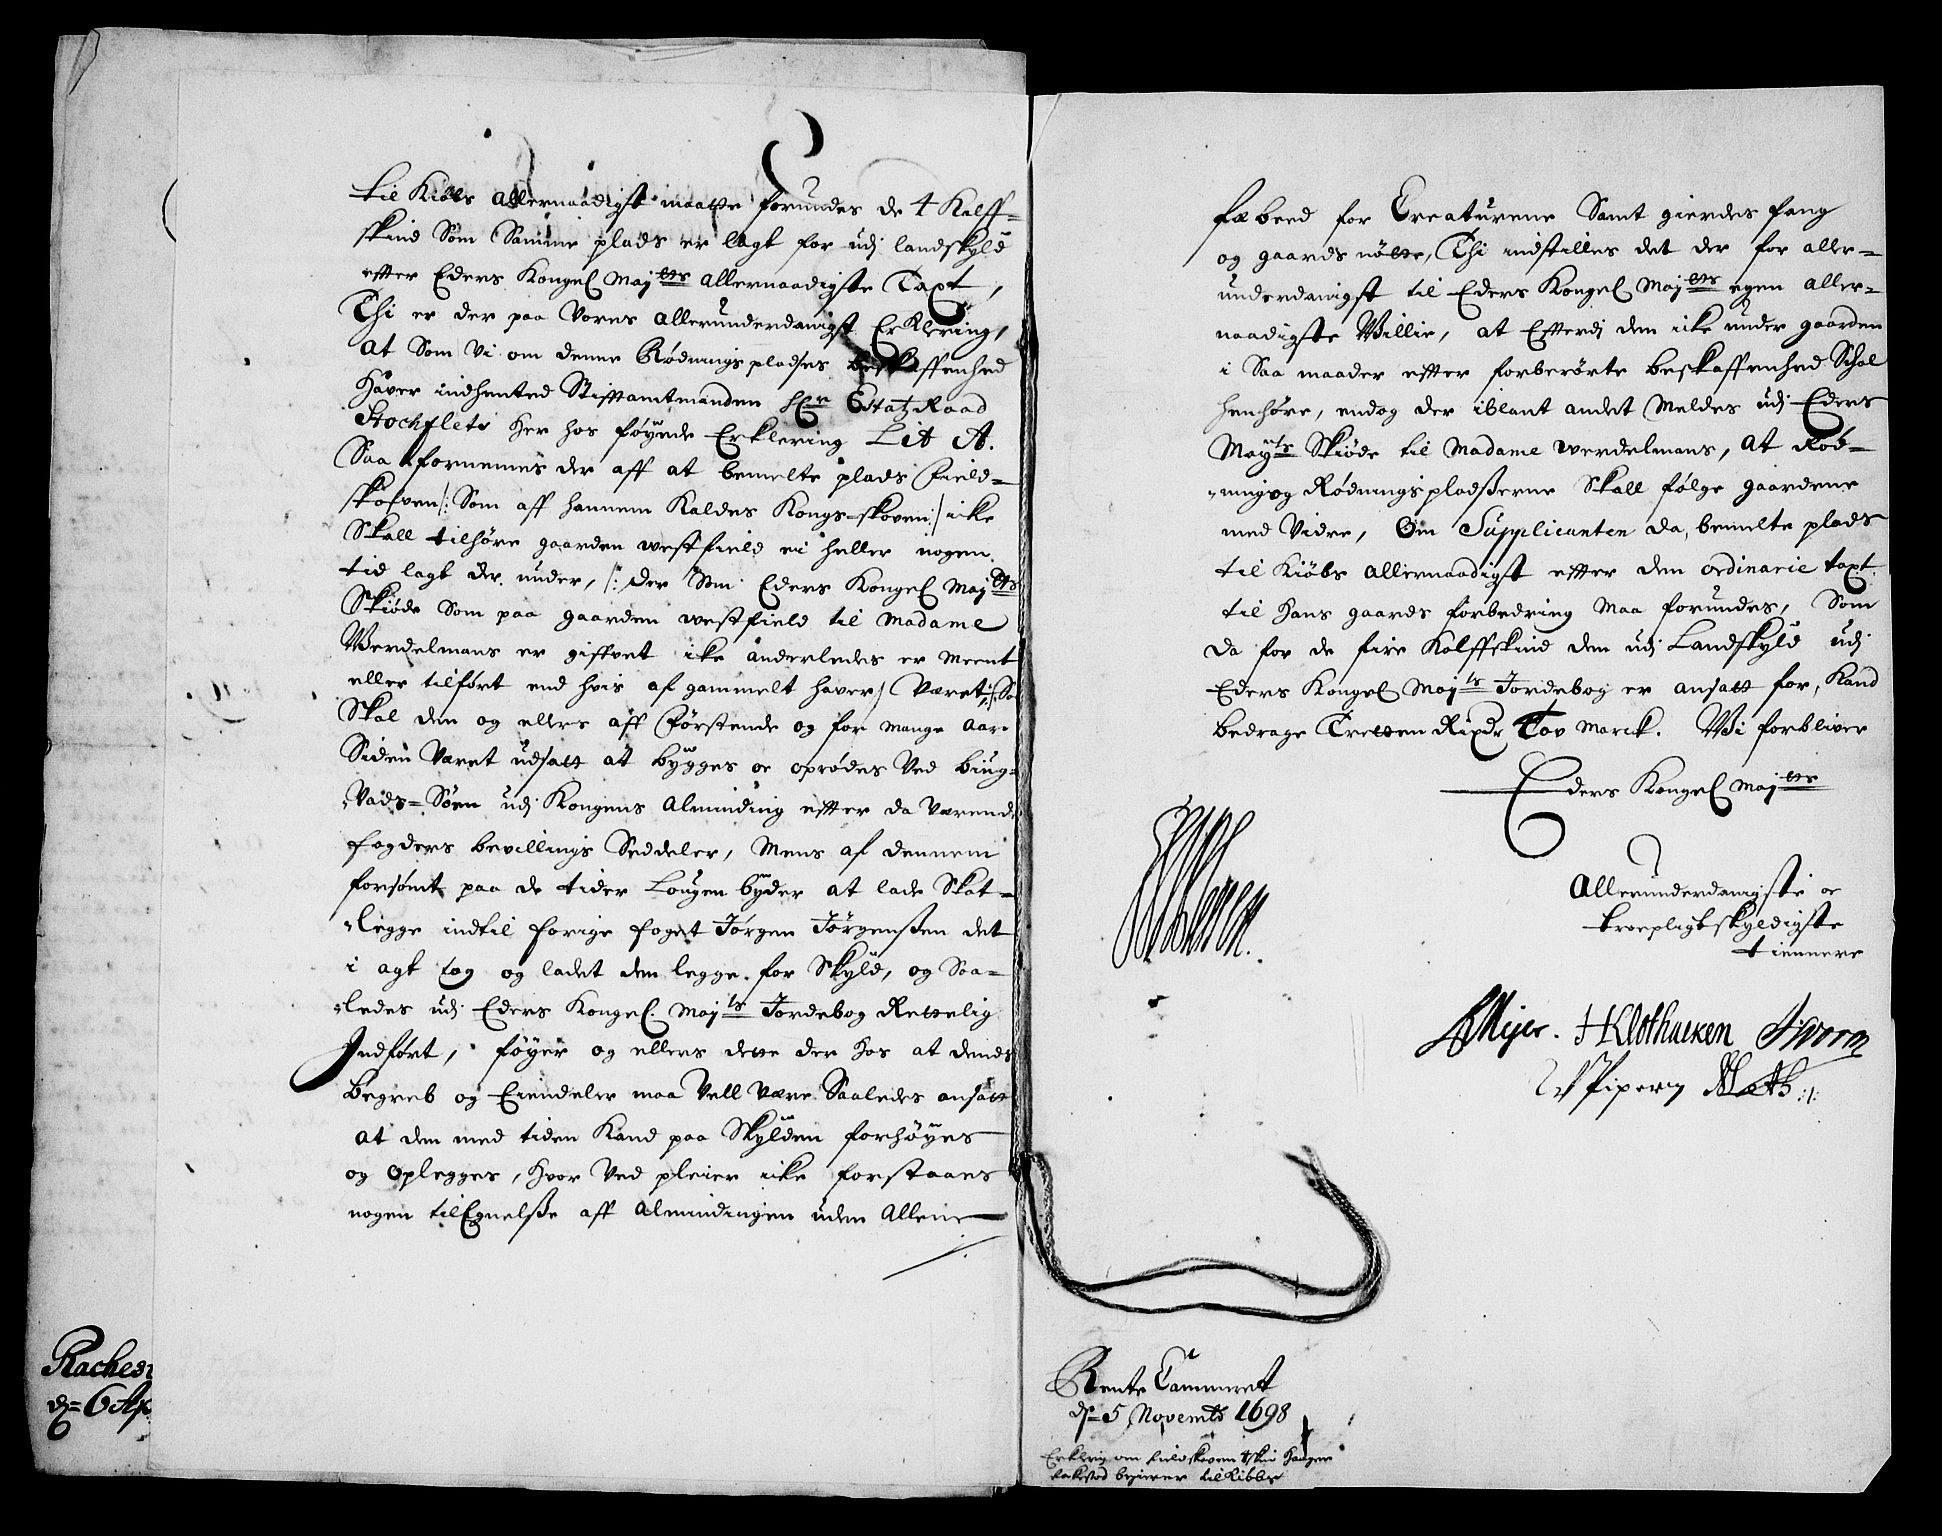 til Kiøbs allernaadigst maatte forundes de 4 Kalff-
skind Som Samme plads er lagt for udj landskyld
efter Eders Kongel Maj<sup>tts</sup> allernaadigste Taxt,
Thi er der paa Vores allerunderdanigst ErKlering,
at Som Vi om denne Rødnings pladses beskaffenhed
haver indhented Stifftamtmanden H<sup>r</sup> Etatz Raad
Stochflets her hos føyede Erklering Lit A.
Saa fornemmes der aff at bemelte plads Field-
skofven /: Som aff hannem Kaldes Kongs-skoven :/ icke
Skall tilhøre gaarden westfield ei heller nogen
tid lagt der under, /: der Som Eders Kongel Maj<sup>tts</sup>
Skiøde Som paa gaarden westfield til Madame
Werdelmans er giffvet ike anderledes er Meent
eller tilført end hvis af gammelt haver Været, :/ Saa
Skal den og ellers aff Førstende og for mange aar
Siden Været udsatt at bygges oc oprødes Ved biug-
Vads-Søen udj Kongens Alminding effter da Værende
fogders bevillings Seddeler, Mens af dennem
forsømt paa de tider Lougen byder at lade Skat-
legge indtil forige foget Jørgen Jørgenssen det
i agt tog og ladet dem legge for Skyld, og Saa-
ledes udj Eders Kongel. Maj<sup>ts</sup> Jordebog Rettelig
Indført, føyer og ellers dette der hos at dends
begreb og Eiendeler maa Vell Være Saaledes ansatt
at dem med tiden Kand paa Skylden forhøyes
og oplegges, hvor Ved pleier icke forstaaes
nogen tilEgnelsse aff Almindingen uden Allene
Rachest
d= 6 Ap
fæbeed for Creaturene Samt gierdes fang
og gaards nøtte, Thi indstilles det der for aller-
underdanigst til Eders Kongel Maj<sup>tts</sup> egen aller-
naadigste Willie, at Efterdj den icke under gaarden
i Saa maader effter forberørte beskaffenhed Schal
henhøre, endog der iblant andet Meldes udj Eders
May<sup>ts</sup> Skiøde til Madame werdelmans, at Rød-
ning og Rødnings pladsserne Skall følge gaardene
med Videre, Om Supplicanten da, bemelte plads
til Kiøbs allernaadigst effter den ordinarie taxt
til hans gaards forbedring Maa forundes, Som
da for de fire Kalffskind den udj Landskyld udj
Eders Kongel Maj<sup>ts</sup> Jordebog er ansatt for, Kand
bedrage Tretten Rixdr Tov Marck. Wi forbliver
Eders Kongel Maj<sup>tts</sup>
Allerunderdanigste oc
troepligtskyldigste
tiennere
Meyer. HKlothacken J Worm
Piper
Rente Cammeret
d= 5 Novemb 1698
Erklerig om fieldskoven 4 skin
begierer til Kiøbs